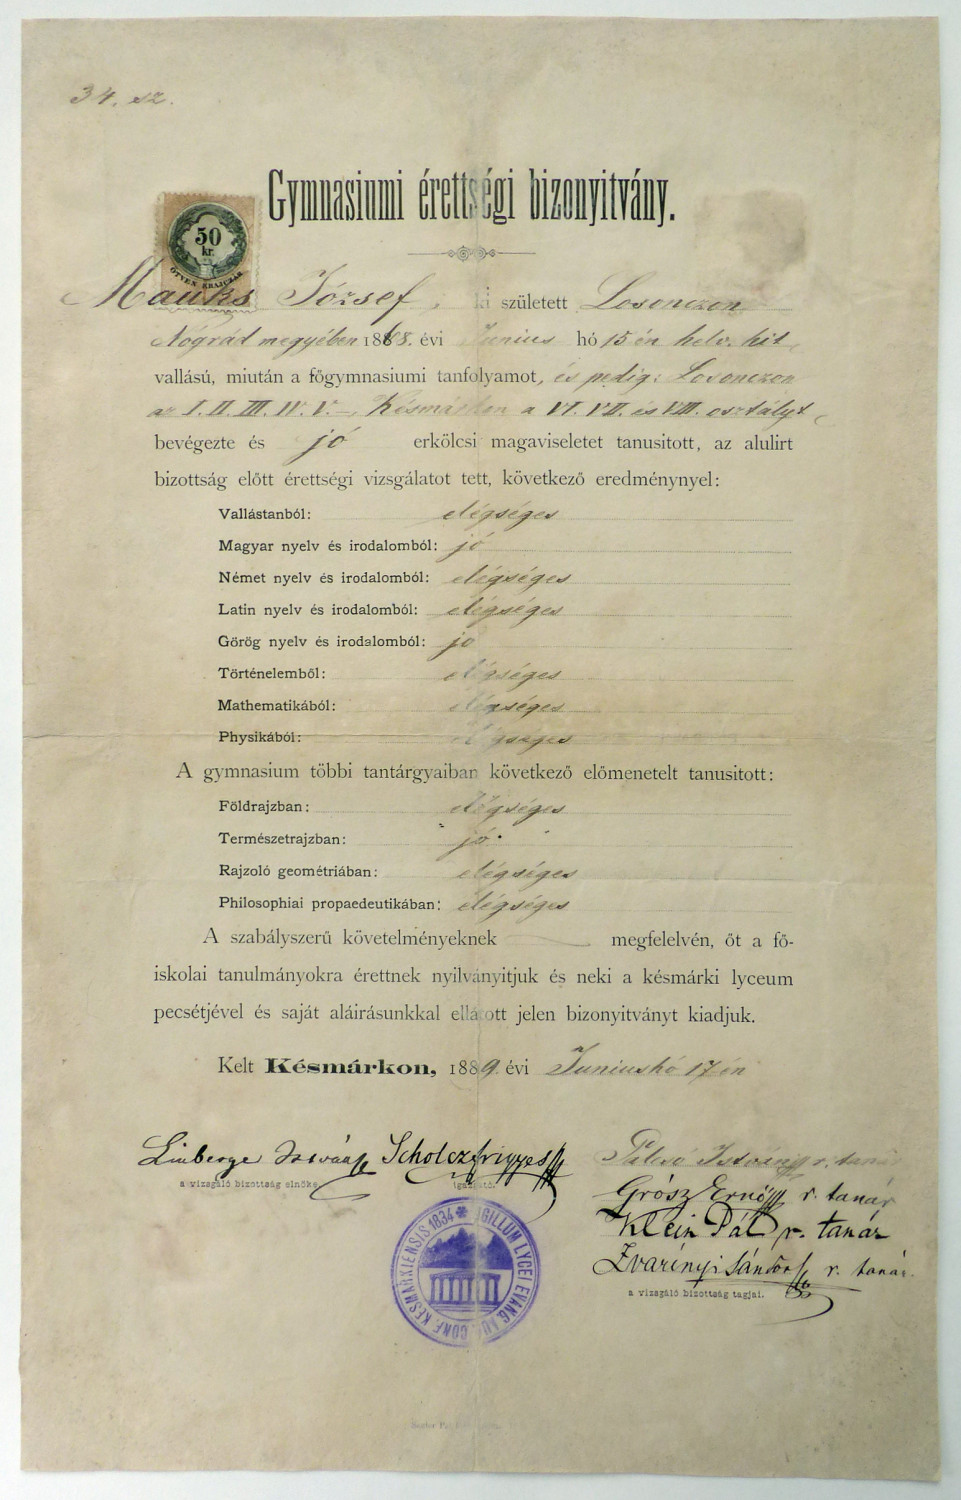 34. sz.
Gymnasiumi érettségi bizonyitvány.
50
kr.
ÖTVEN KRAJCZÁR
Mauks József, ki született Losonczon
Nógrád megyében 1868. évi Junius hó 15 én helv. hit
vallású, miután a főgymnasiumi tanfolyamot, és pedig: Losonczon
az I. II. III. IV. V. –, Késmárkon a VI. VII. és VIII. osztályt
bevégezte és jó erkölcsi magaviseletet tanusitott, az alulirt
bizottság előtt érettségi vizsgálatot tett, következő eredménynyel:
Vallástanból: elégséges
Magyar nyelv és irodalomból: jó
Német nyelv és irodalomból: elégséges
Latin nyelv és irodalomból: elégséges
Görög nyelv és irodalomból: jó
Történelemből: elégséges
Mathematikából: elégséges
Physikából: elégséges
A gymnasium többi tantárgyaiban következő előmenetelt tanusitott:
Földrajzban: elégséges
Természetrajzban: jó
Rajzoló geométriában: elégséges
Philosophiai propaedeutikában: elégséges
A szabályszerű követelményeknek megfelelvén, őt a fő-
iskolai tanulmányokra érettnek nyilványitjuk és neki a késmárki lyceum
pecsétjével és saját aláirásunkkal ellátott jelen bizonyitványt kiadjuk.
Kelt Késmárkon, 1889. évi Juniushó 17 én
Linberge István Scholcz Frigyes
a vizsgáló bizottság elnöke. igazgató.
István r. tanár
Grósz Ernő r. tanár
Klein Pál r. tanár
Zvarinyi Sándor r. tanár.
a vizsgáló bizottság tagjai.
SIGILLUM LYCEI EVANG. AUG. CONF. KÉSMARKIENSIS 1834